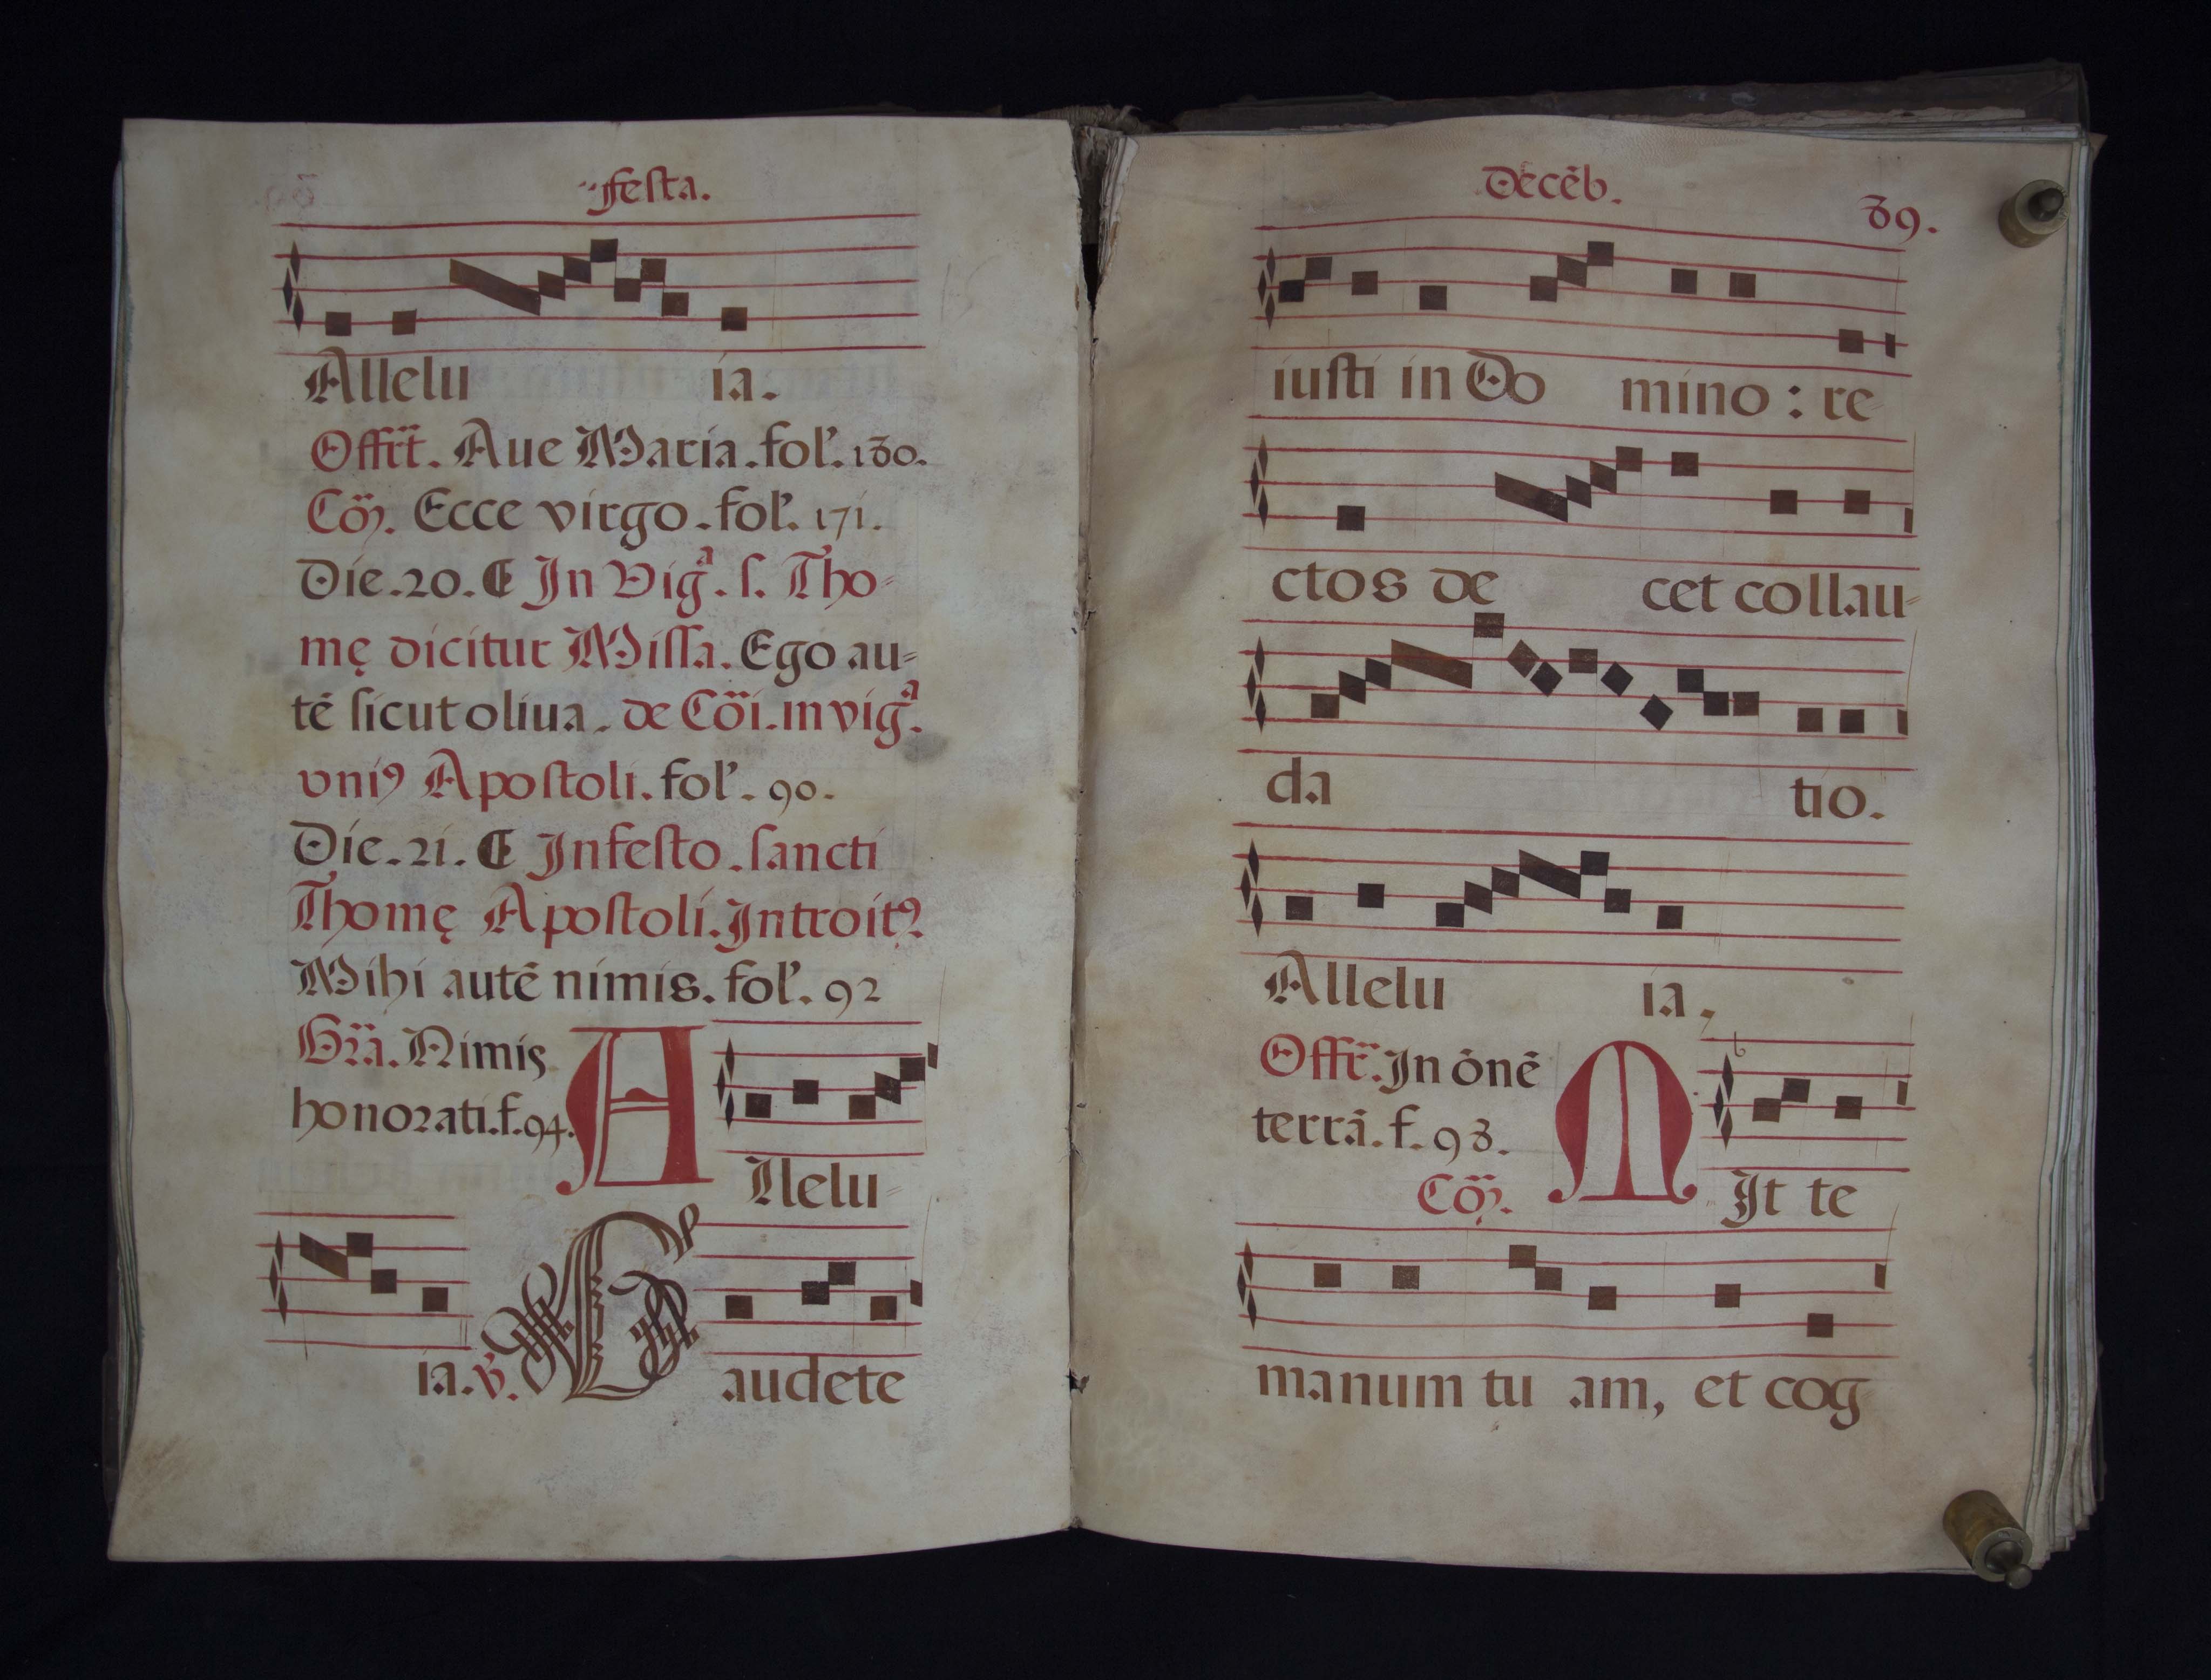 festa.
Allelu ia.
Offr̃t. Aue Maria. fol'. 180.
Cõ. Ecce virgo. fol'. 171.
Die. 20. ¶ In Vig.ᵃ s. Tho=
mę dicitur Missa. Ego au=
tē sicut oliua. de Cõi. in vig.ᵃ
vniꝰ Apostoli. fol'. 90.
Die. 21. ¶ In festo. sancti
Thomę Apostoli. Introitꝰ.
Mihi autē nimis. fol'. 92
Gr̃a. Nimis
honorati. f. 94.
A
llelu=
ia. ℣. G audete
Decēb.
89.
iusti in Do mino : re=
ctos de cet collau=
da tio.
Allelu ia.
Offr̃. In ōnē
terrā. f. 98.
Cõ. M It te
manum tu am, et cog